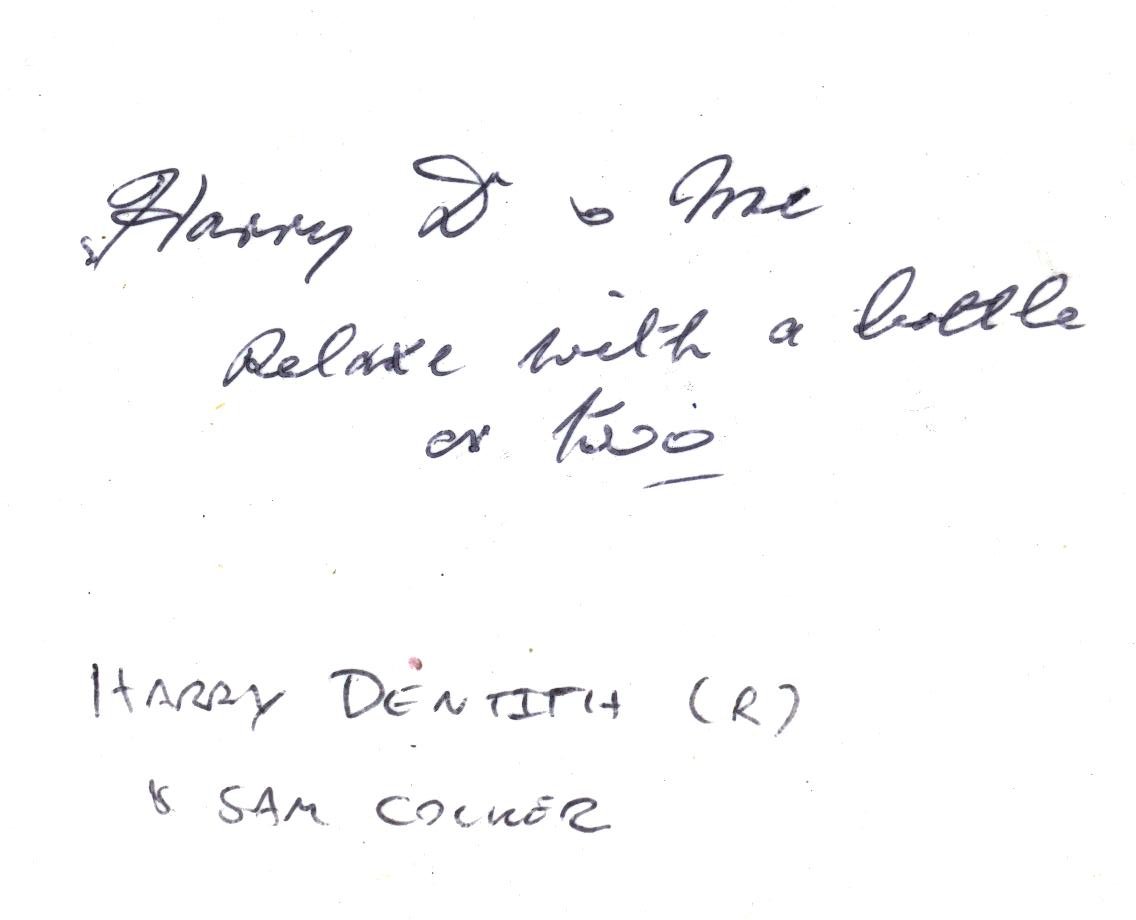 Harry D & Me
Relaxe with a bottle
or two
HARRY DENTITH (R)
& SAM COCKER